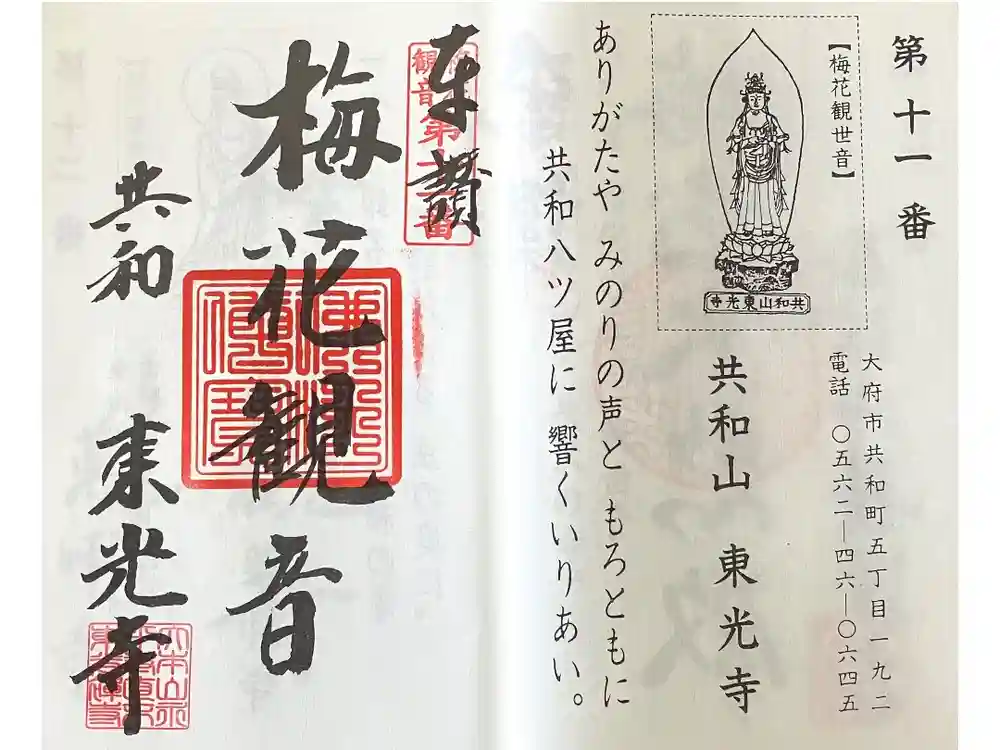 第十一番
【梅花観世音】
共和山東光寺
大府市共和町五丁目一九二
電話 〇五六二―四六―〇六四五
共和山 東光寺
ありがたや みのりの声と もろともに
共和八ツ屋に 響くいりあい。
奉讃
観音
第十一番
梅花観音
共和
東光寺